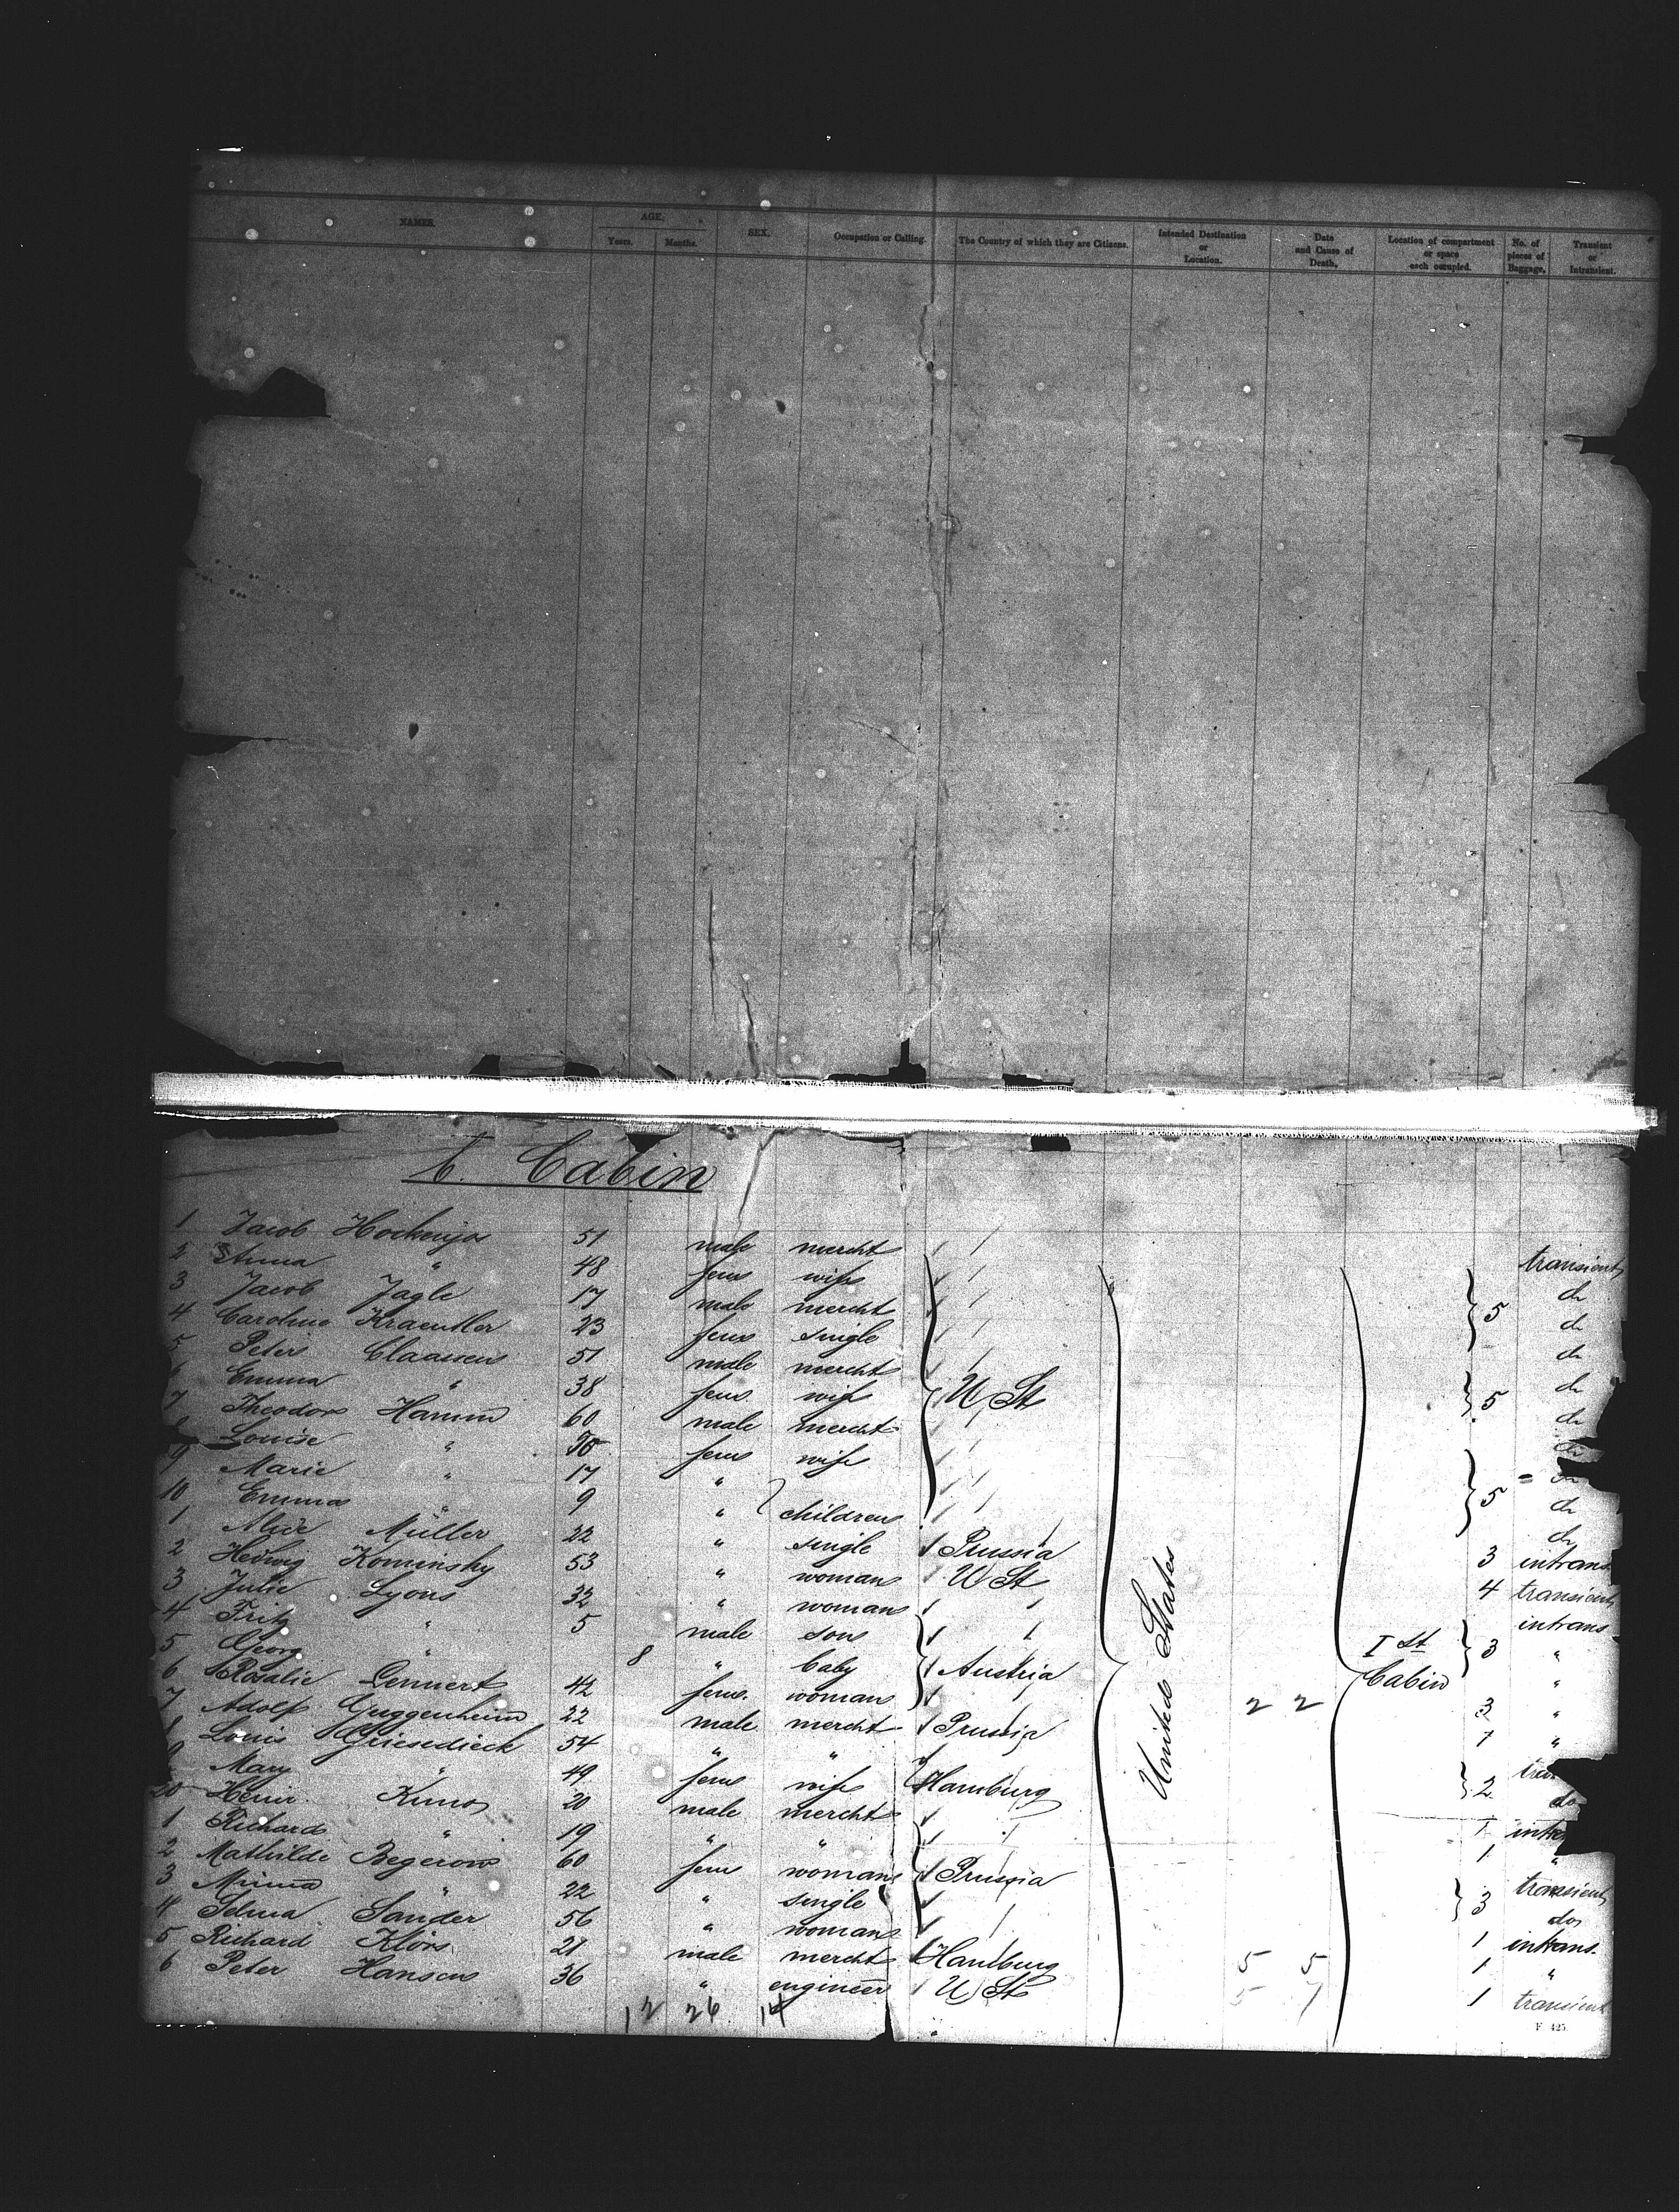 NAMES. AGE. SEX. Occupation or Calling. The Country of which they are Citizens. Intended Destination or Location. Date and Cause of Death. Location of compartment or space each occupied. No. of pieces of Baggage. Transient or Intransient.
Years. Months.
Cabin
1 Jacob 51 male mercht transient
2 Anna " 48 fem wife do
3 Jacob Jagle 17 male mercht 5 do
4 Caroline Kraentler 23 fem single do
5 Peter Claassen 51 male mercht do
6 Emma " 38 fem. wife U St 5 do
7 Theodor Hamm 60 male mercht
8 Louise " fem wife
9 Marie " 17 " 5 do
10 Emma " 9 " children do
1 Alice Müller 22 " single Prussia 3 intrans
2 Hedwig Kominsky 53 " woman U St 4 transient
3 Julie Lyons 32 " woman intrans
4 Fritz " 5 male son 3 "
5 Georg " 8 " baby Austria "
6 Rosalie Lennert 42 fem. woman 3 "
7 Adolf Guggenheim 22 male mercht Prussia 7 "
8 Louis Griesedieck 54 " "
9 Mary " 49 fem wife Hamburg 2 do
20 Heinr. Kuno 20 male mercht 1
1 Richard " 19 " " 1 "
2 Mathilde Begerow 60 fem woman Prussia transient
3 Minna " 22 " single 3 do
4 Selma Sander 56 " woman 1 intrans.
5 Richard Klörs 21 male mercht Hamburg 1 "
6 Peter Hansen 36 " engineer U St 1 transient
United States
I St Cabin
2 2
5 5
5 7
12 26 14
F. 425.